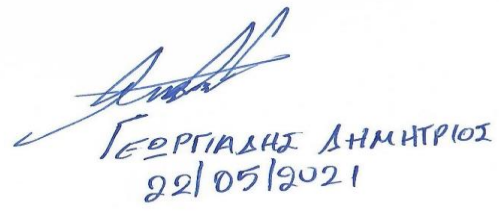 ΓΕΩΡΓΙΑΔΗΣ ΔΗΜΗΤΡΙΟΣ
22/05/2021